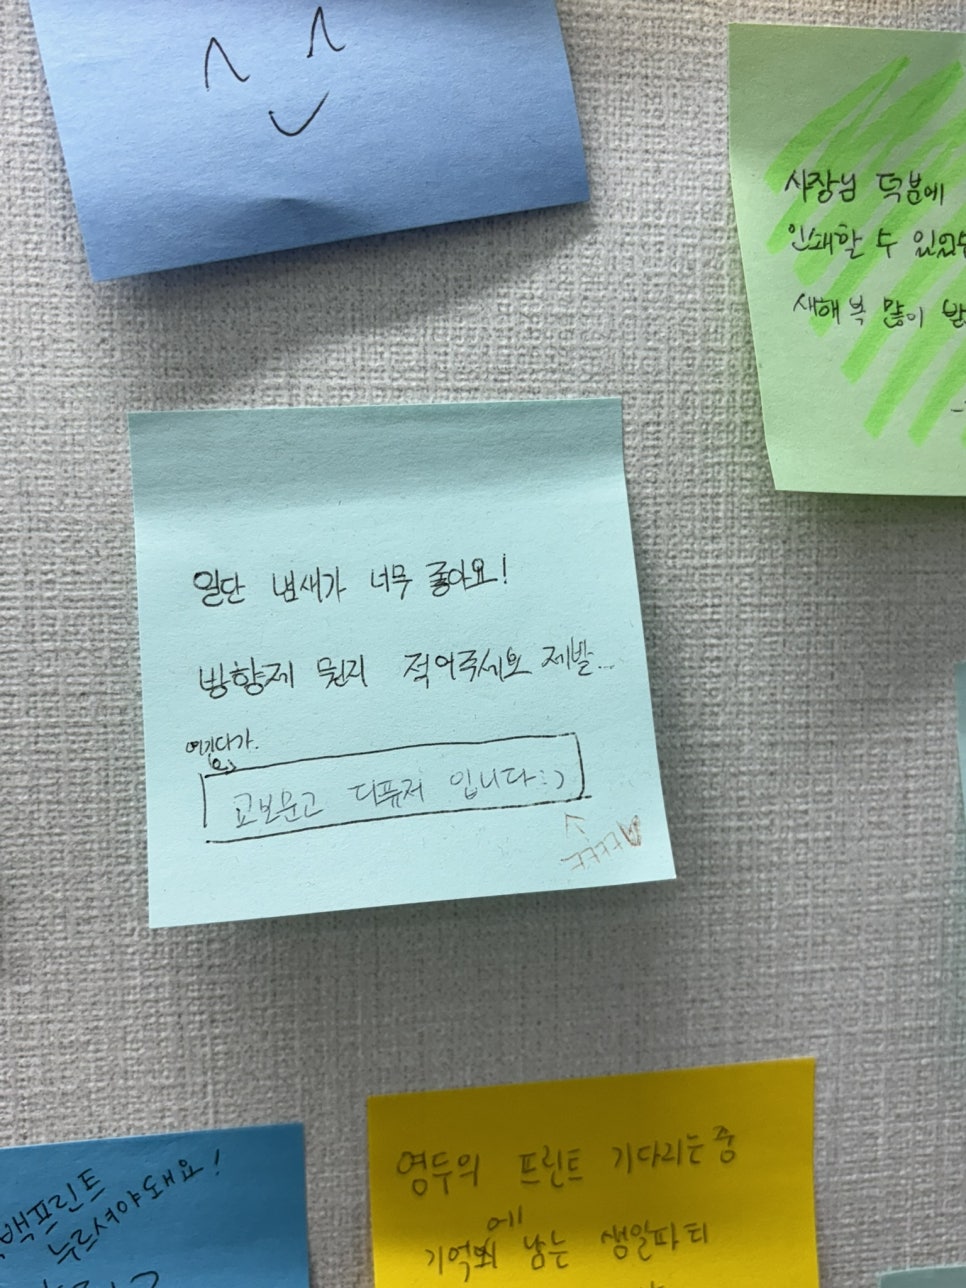 사장님 덕분에
인쇄할 수 있었
새해 복 많이 받
일단 냄새가 너무 좋아요!
방향제 뭔지 적어주세요 제발...
여기다가.
교보문고 디퓨저 입니다:)
ㅋㅋㅋㅋ
흑백프린트
누르셔야돼요!
영두의 프린트 기다리는 중
에
기억 남는 생일파티